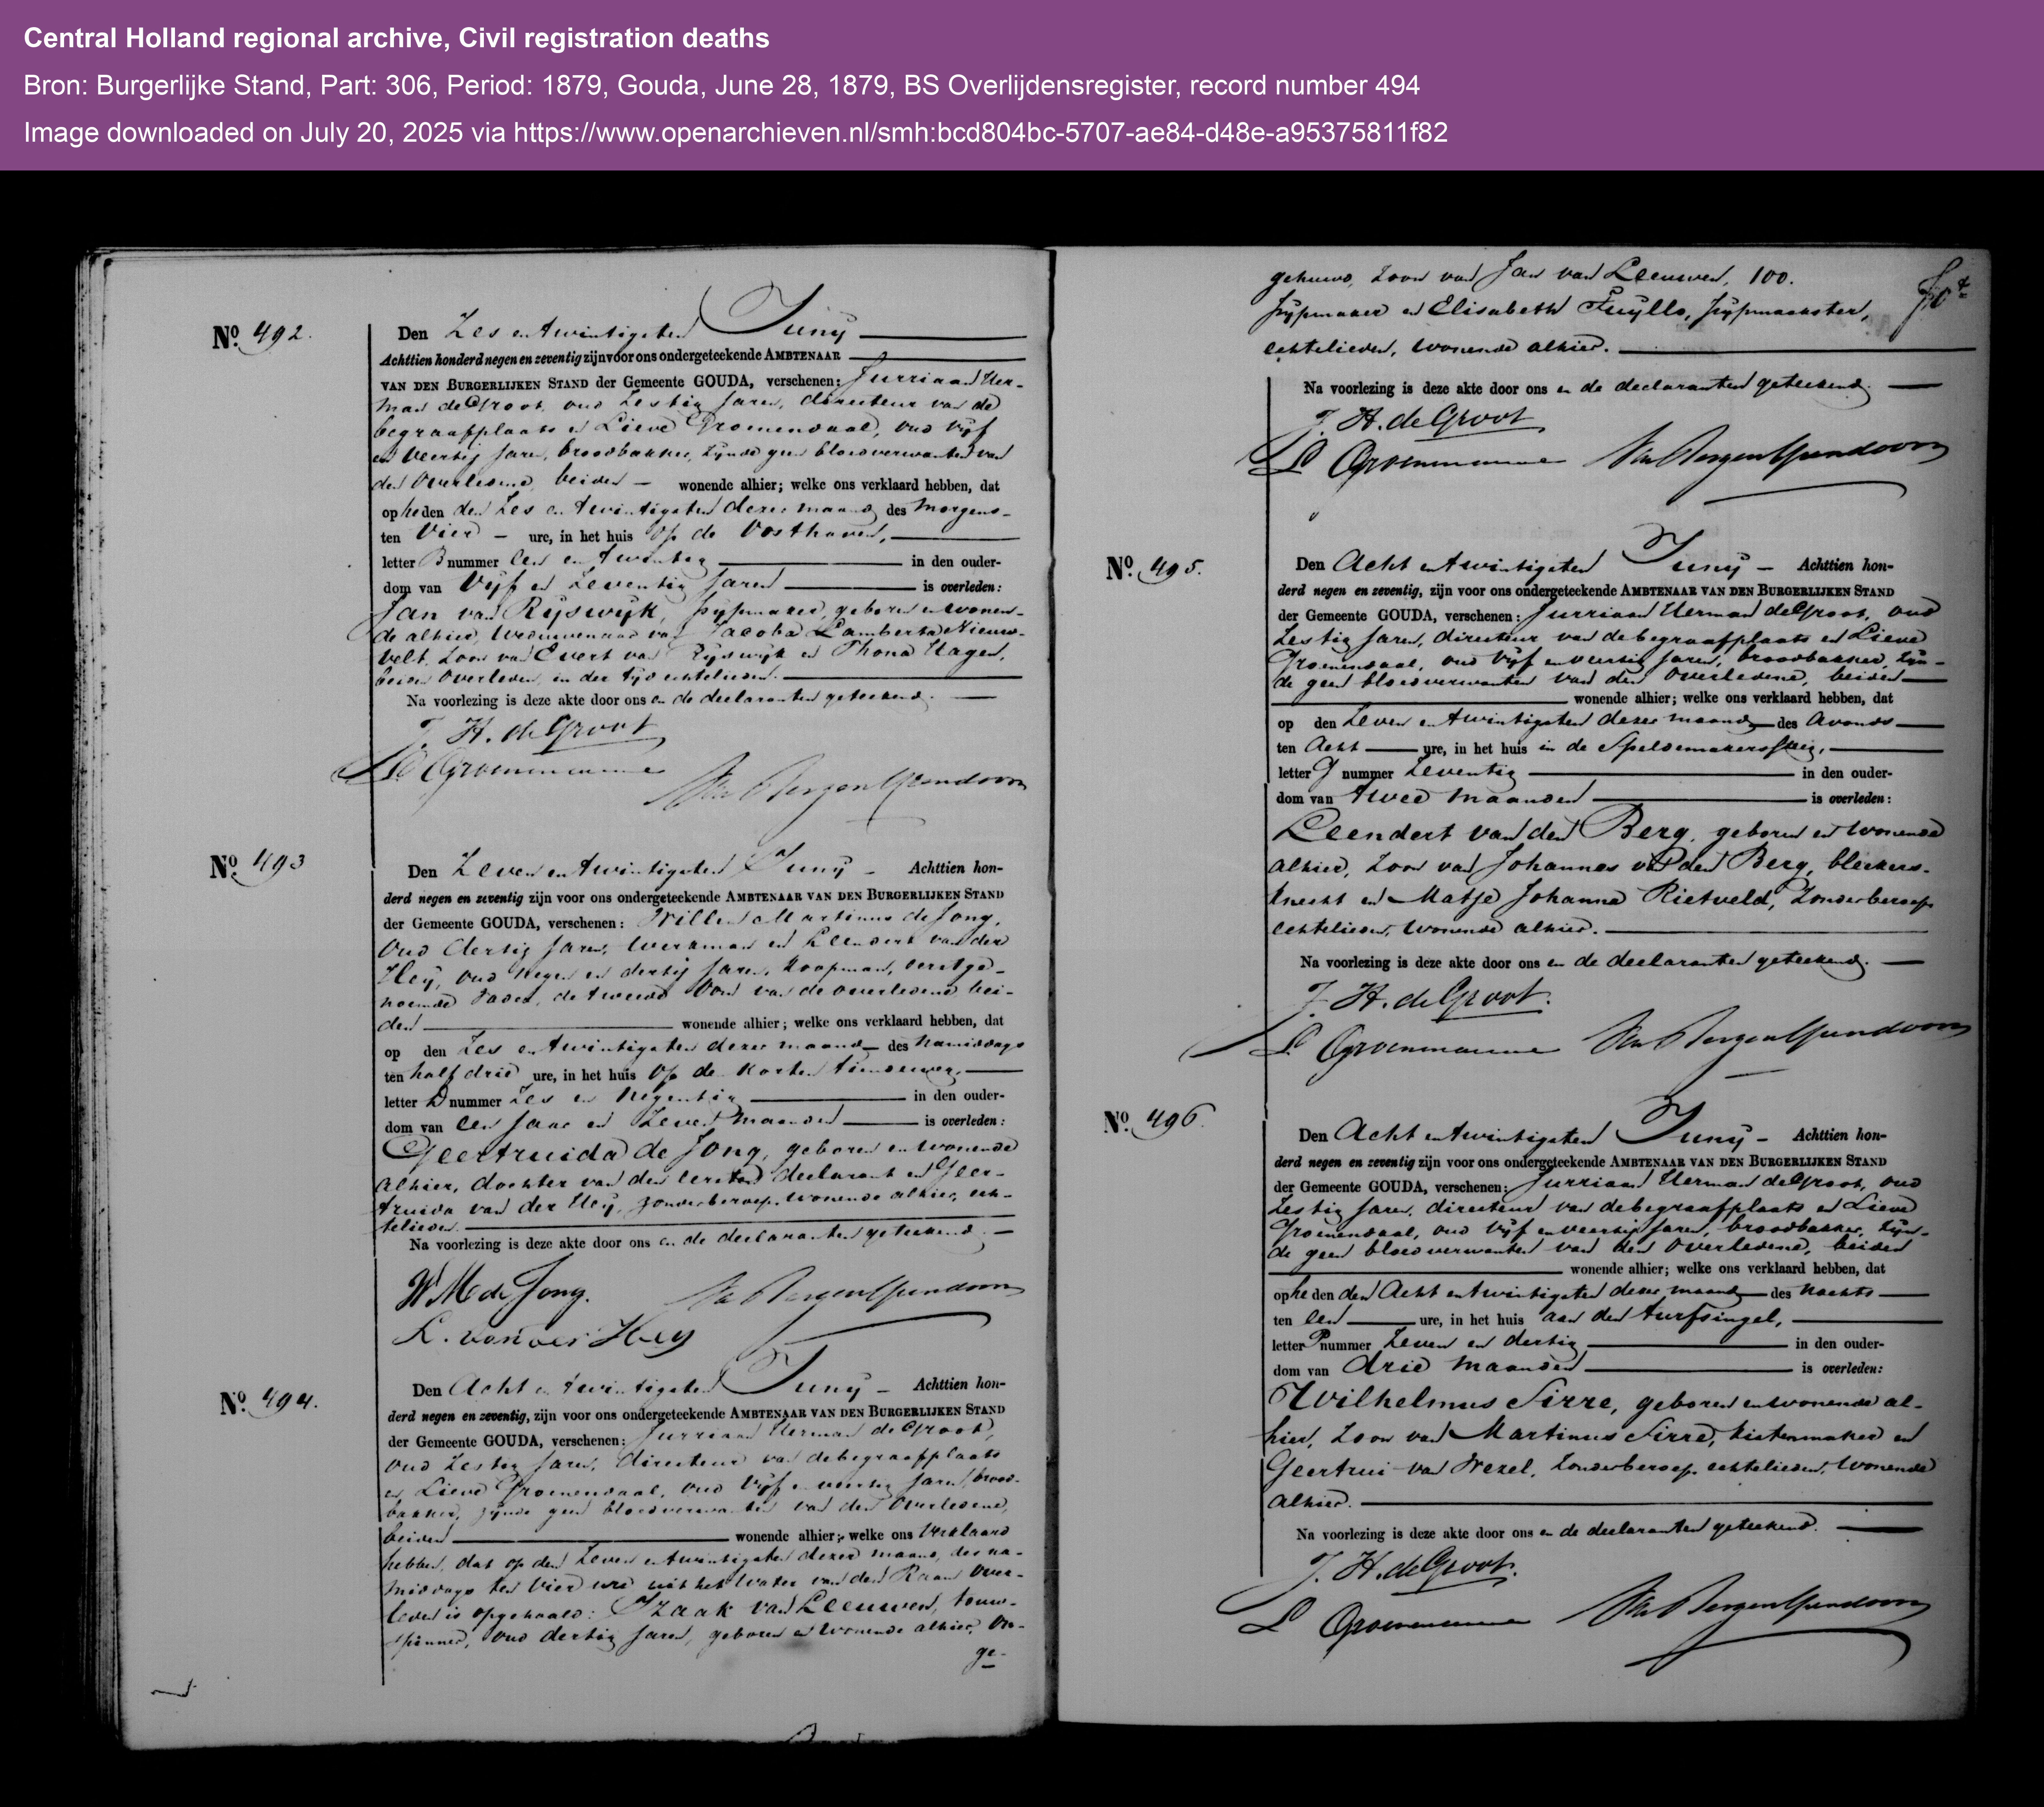 Central Holland regional archive, Civil registration deaths
Bron: Burgerlijke Stand, Part: 306, Period: 1879, Gouda, June 28, 1879, BS Overlijdensregister, record number 494
Image downloaded on July 20, 2025 via https://www.openarchieven.nl/smh:bcd804bc-5707-ae84-d48e-a95375811f82
No. 492.
Den Zes en twintigsten Juny
Achttien honderd negen en zeventig zijn voor ons ondergeteekende AMBTENAAR
VAN DEN BURGERLIJKEN STAND der Gemeente GOUDA, verschenen: Jurriaan Her-
man de Groot, oud Zestig Jaren, directeur van de
begraafplaats en Lieve Groenendaal, oud Vijf
en Veertig Jaren, broodbakker, zijnde geen bloedverwanten van
den Overledene, beiden wonende alhier; welke ons verklaard hebben, dat
op heden den Zes en twintigsten dezer maand des morgens
ten Vier ure, in het huis op de Oosthaven,
letter B nummer Een en twintig in den ouder-
dom van Vijf en Zeventig Jaren is overleden:
Jan van Rijswijk, pijpmaker, geboren en wonen-
de alhier, Weduwenaar van Jacoba Lamberta Nieuw-
velt, Zoon van Evert van Rijswijk en Thona Hagen,
beiden Overleden, in der tijd echtelieden.
Na voorlezing is deze akte door ons en de declaranten geteekend.
J. H. de Groot
No. 493
Den Zeven en twintigsten Juny Achttien hon-
derd negen en zeventig zijn voor ons ondergeteekende AMBTENAAR VAN DEN BURGERLIJKEN STAND
der Gemeente GOUDA, verschenen: Willem Martinus de Jong,
Oud dertig Jaren, Werkman en Leendert van der
Heij, oud negen en dertig Jaren, Koopman, eerstge-
noemde Vader, de tweede Oom van de overledene, bei-
den wonende alhier; welke ons verklaard hebben, dat
op den Zes en twintigsten dezer maand des namiddags
ten half drie ure, in het huis op de Korten tiendeweg,
letter D nummer Zes en Negentig in den ouder-
dom van Een Jaar en Zeven Maanden is overleden:
Geertruida de Jong, geboren en wonende
alhier, dochter van den eersten declarant en Geer-
truida van der Heij, zonder beroep, wonende alhier, ech-
telieden.
Na voorlezing is deze akte door ons en de declaranten geteekend.
W M de Jong.
L. van der Heij
No. 494.
Den Acht en twintigsten Juny Achttien hon-
derd negen en zeventig, zijn voor ons ondergeteekende AMBTENAAR VAN DEN BURGERLIJKEN STAND
der Gemeente GOUDA, verschenen: Jurriaan Herman de Groot,
oud Zestig Jaren, directeur van de begraafplaats
en Lieve Groenendaal, oud Vijf en veertig Jaren, brood-
bakker, zijnde geen bloedverwanten van den Overledene,
beiden wonende alhier; welke ons Verklaard
hebben, dat op den Zeven en twintigsten dezer maand, des na-
middags ten Vier ure uit het Water van den Raam Over-
leden is opgehaald: Izaak van Leeuwen, touw-
spinner, oud dertig Jaren, geboren en wonende alhier, On-
ge-
gehuwd, Zoon van Jan van Leeuwen, 100.
pijpmaker en Elisabeth Fuylls, pijpmaakster,
echtelieden, wonende alhier.
Na voorlezing is deze akte door ons en de declaranten geteekend.
J. H. de Groot
No. 495.
Den Acht en twintigsten Juny Achttien hon-
derd negen en zeventig, zijn voor ons ondergeteekende AMBTENAAR VAN DEN BURGERLIJKEN STAND
der Gemeente GOUDA, verschenen: Jurriaan Herman de Groot, oud
Zestig Jaren, directeur van de begraafplaats en Lieve
Groenendaal, oud Vijf en veertig Jaren, broodbakker, zijn-
de geen bloedverwanten van den Overledene, beiden
wonende alhier; welke ons verklaard hebben, dat
op den Zeven en twintigsten dezer maand des Avonds
ten Acht ure, in het huis in de Speldemakerssteeg,
letter G nummer Zeventig in den ouder-
dom van twee Maanden is overleden:
Leendert van den Berg, geboren en wonende
alhier, Zoon van Johannes van den Berg, bleekers-
knecht en Matje Johanna Rietveld, Zonder beroep,
echtelieden, wonende alhier.
Na voorlezing is deze akte door ons en de declaranten geteekend.
J. H. de Groot.
No. 496.
Den Acht en twintigsten Juny Achttien hon-
derd negen en zeventig zijn voor ons ondergeteekende AMBTENAAR VAN DEN BURGERLIJKEN STAND
der Gemeente GOUDA, verschenen: Jurriaan Herman de Groot, oud
Zestig Jaren, directeur van de begraafplaats en Lieve
Groenendaal, oud Vijf en veertig Jaren, broodbakker, zijn-
de geen bloedverwanten van den Overledene, beiden
wonende alhier; welke ons verklaard hebben, dat
op heden den Acht en twintigsten dezer maand des nachts
ten Een ure, in het huis aan den turfsingel,
letter P nummer Zeven en dertig in den ouder-
dom van drie Maanden is overleden:
Wilhelmus Sirre, geboren en wonende al-
hier, Zoon van Martinus Sirre, kistenmaker en
Geertrui van Wezel, Zonder beroep, echtelieden, Wonende
alhier.
Na voorlezing is deze akte door ons en de declaranten geteekend.
J. H. de Groot.